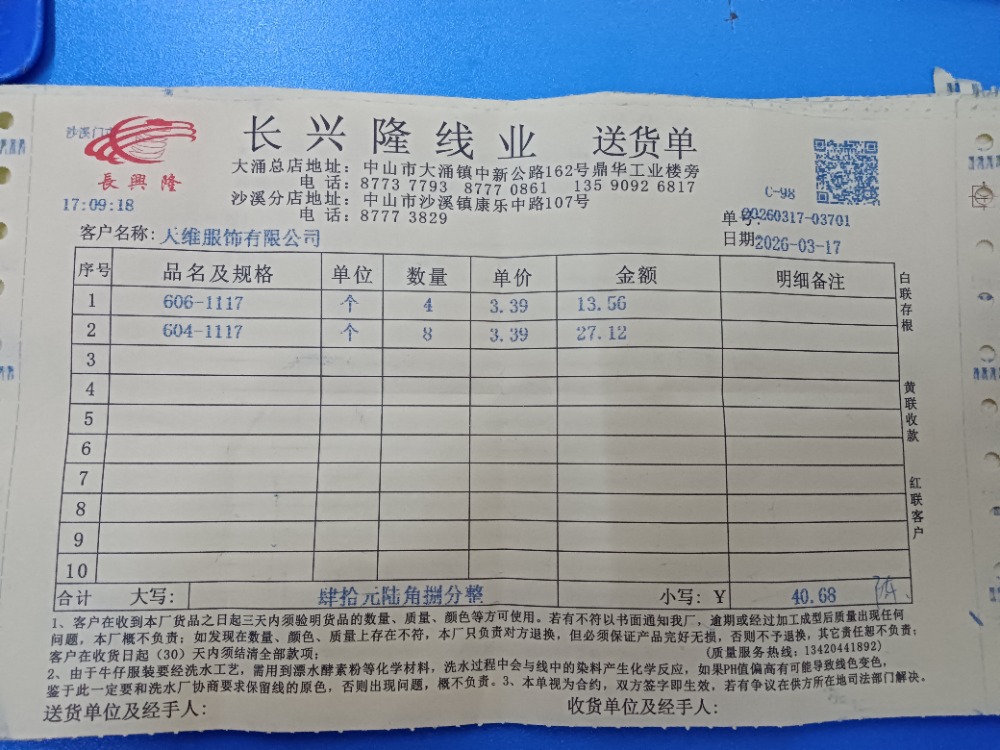 沙溪门
長興隆
长兴隆线业 送货单
大涌总店地址：中山市大涌镇中新公路162号鼎华工业楼旁
电话：8773 7793 8777 0861 135 9092 6817
沙溪分店地址：中山市沙溪镇康乐中路107号
电话：8777 3829
17:09:18
C-98
单号:20260317-03701
客户名称:人维服饰有限公司
日期2026-03-17
序号 品名及规格 单位 数量 单价 金额 明细备注
1 606-1117 个 4 3.39 13.56
2 604-1117 个 8 3.39 27.12
3
4
5
6
7
8
9
10
白联存根
黄联收款
红联客户
合计 大写: 肆拾元陆角捌分整 小写: Y 40.68
1、客户在收到本厂货品之日起三天内须验明货品的数量、质量、颜色等方可使用。若有不符以书面通知我厂，逾期或经过加工成型后质量出现任何
问题，本厂概不负责；如发现在数量、颜色、质量上存在不符，本厂只负责对方退换，但必须保证产品完好无损，否则不予退换，其它责任恕不负责；
客户在收货日起（30）天内须结清全部款项； (质量服务热线：13420441892)
2、由于牛仔服装要经洗水工艺，需用到漂水酵素粉等化学材料，洗水过程中会与线中的染料产生化学反应，如果PH值偏高有可能导致线色变色，
鉴于此一定要和洗水厂协商要求保留线的原色，否则出现问题，概不负责。3、本单视为合约，双方签字即生效，若有争议在供方所在地司法部门解决。
送货单位及经手人: 收货单位及经手人: